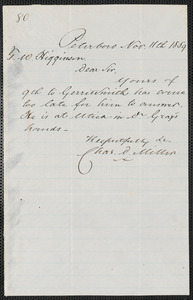 80
Peterboro Nov. 11th 1859
T. W. Higginson
Dear Sir,
Yours of
9th to Gerrit Smith has come
too late for him to answer.
He is at Utica in Dr Grays
hands.
Respectfully &c
Chas. D. Miller